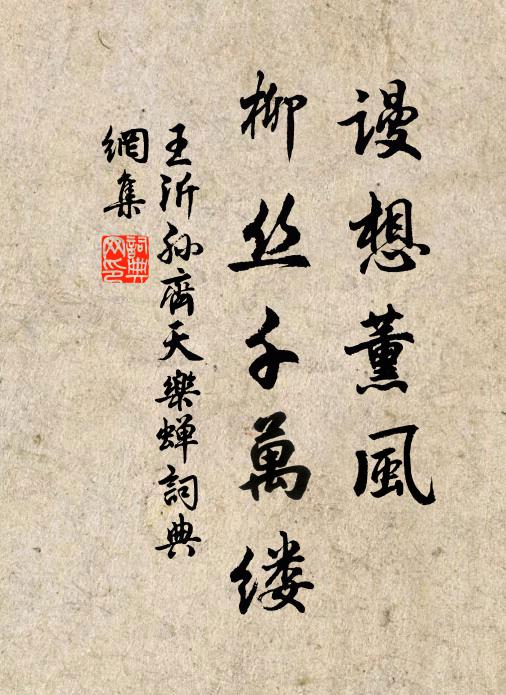 谩想薰風
柳丝千萬缕
王沂孙齊天樂蝉詞典
網集
詞典
网印